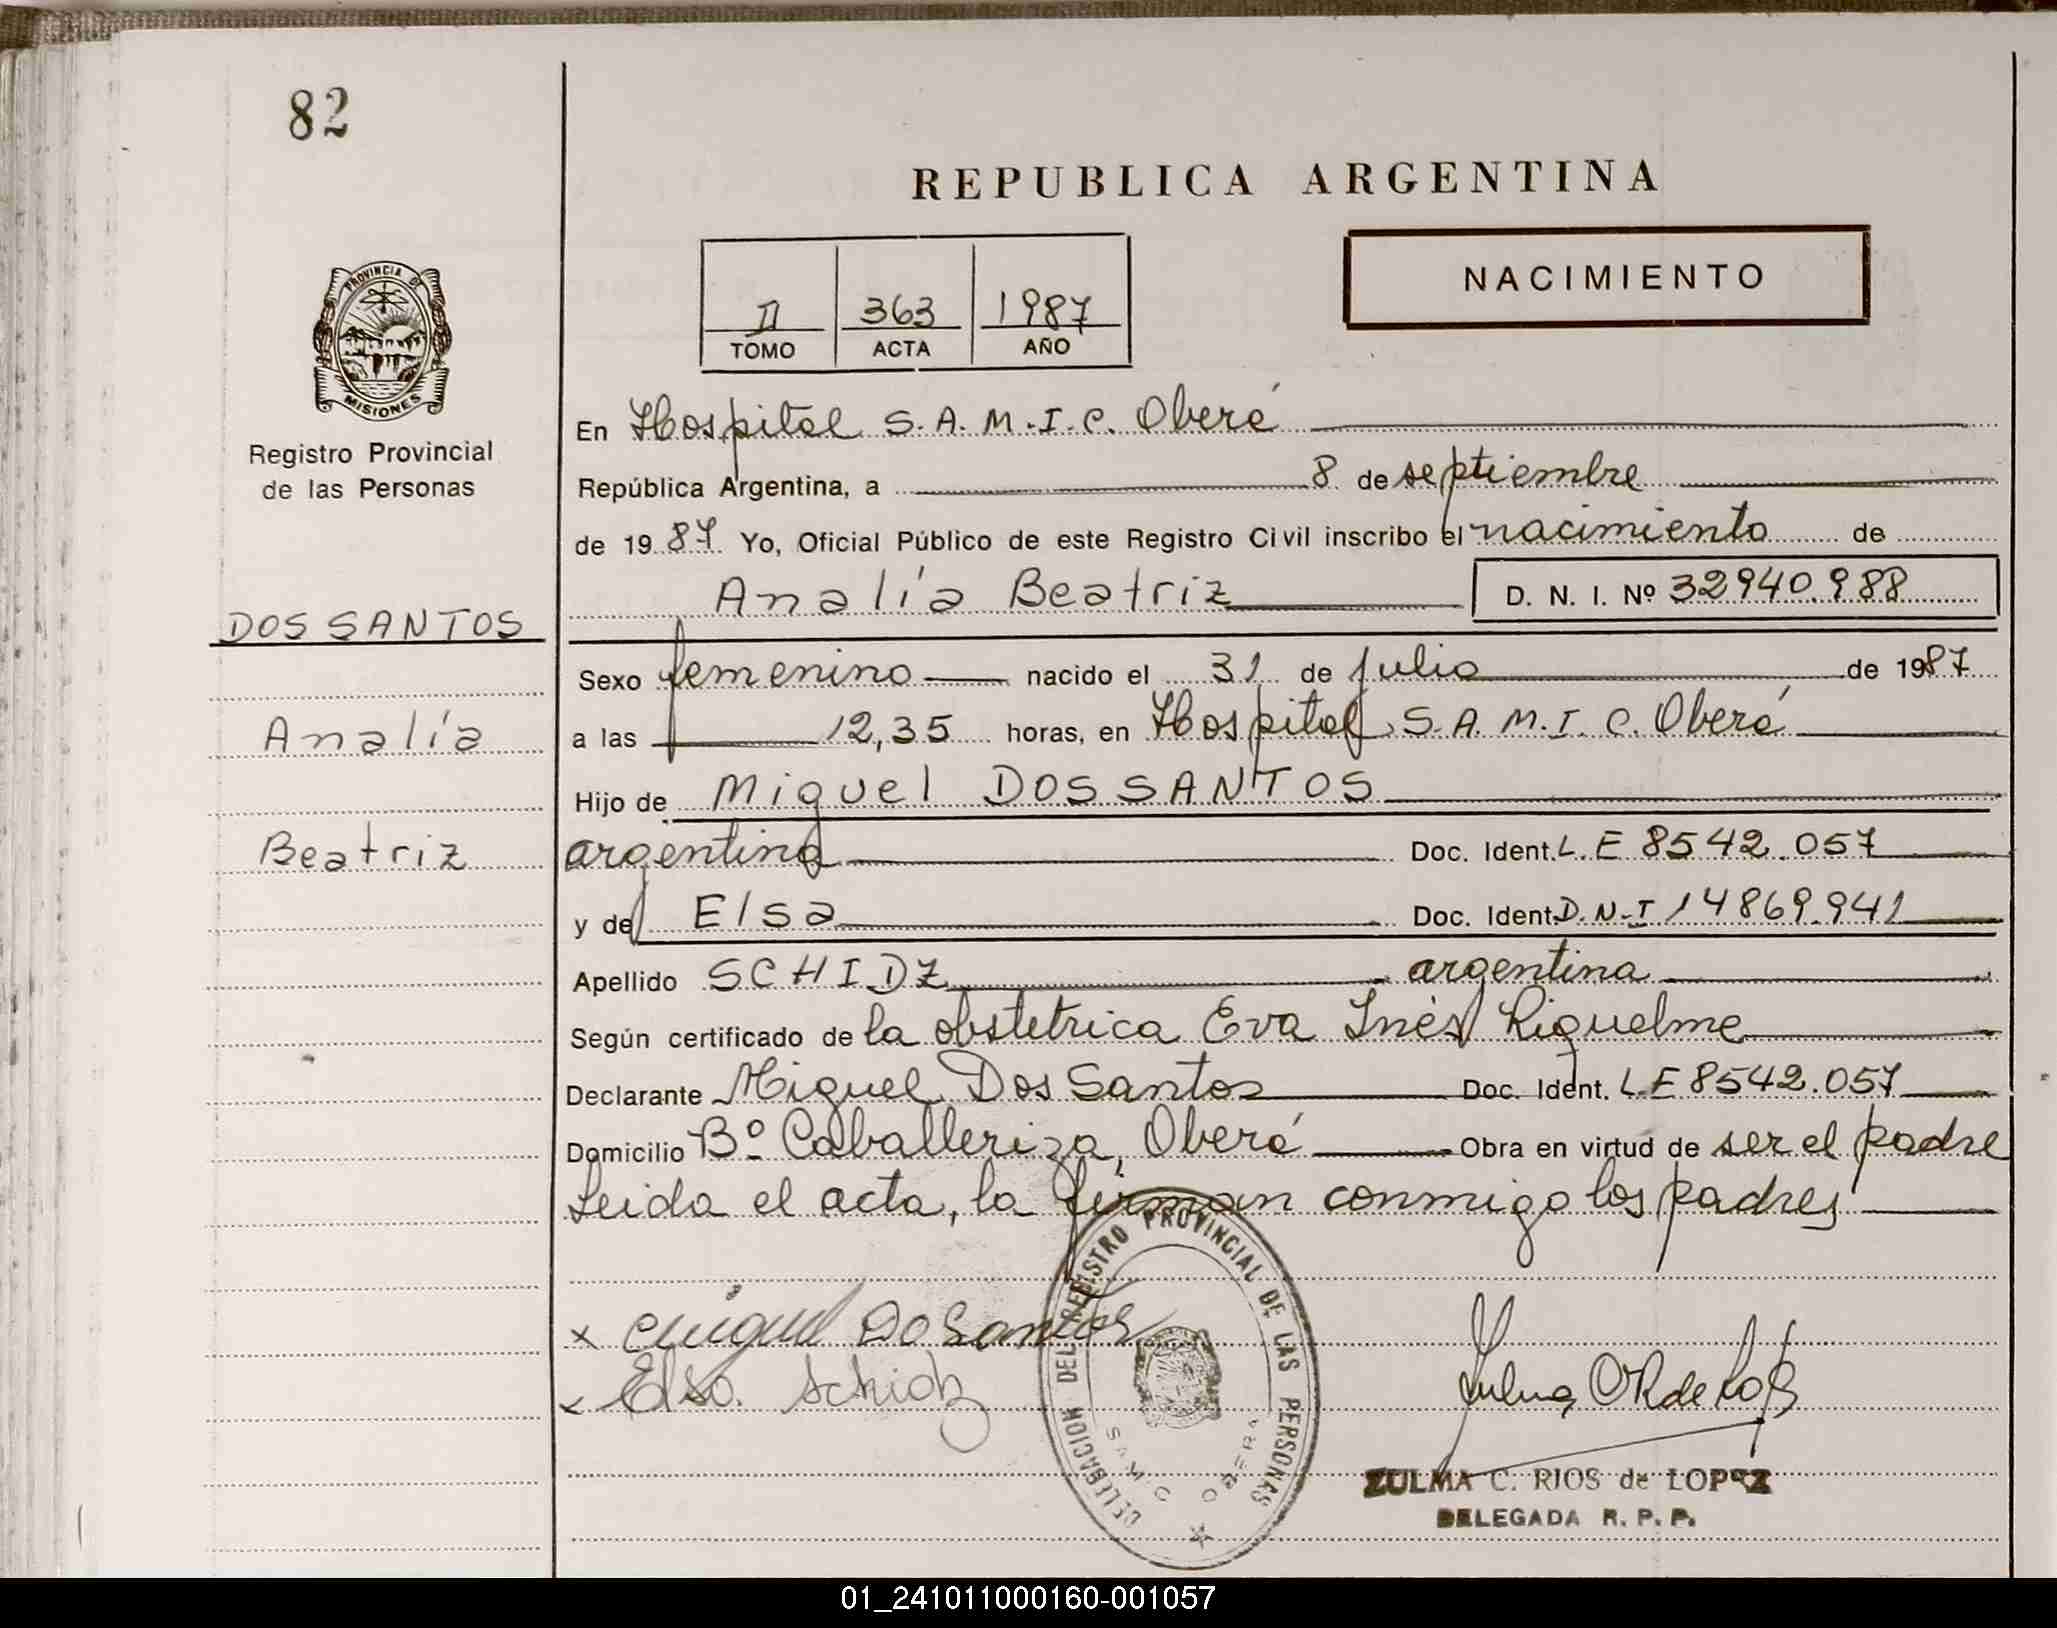 82
REPUBLICA ARGENTINA
NACIMIENTO
II 363 1987
TOMO ACTA AÑO
PROVINCIA DE
MISIONES
Registro Provincial
de las Personas
DOS SANTOS
Analía
Beatriz
En Hospital S.A.M.I.C. Oberá
República Argentina, a 8 de septiembre
de 1987 Yo, Oficial Público de este Registro Civil inscribo el nacimiento de
Analía Beatriz D. N. I. Nº 32940.988
Sexo femenino nacido el 31 de julio de 1987
a las 12,35 horas, en Hospital S.A.M.I.C. Oberá
Hijo de Miguel DOS SANTOS
argentino Doc. Ident. L.E 8542.057
y de Elsa Doc. Ident. D.N.I 14869.941
Apellido SCHIDZ argentina
Según certificado de la obstetrica Eva Inés Riquelme
Declarante Miguel Dos Santos Doc. Ident. L.E 8542.057
Domicilio Bº Caballeriza, Oberá Obra en virtud de ser el padre
Leida el acta, la firman conmigo los padres
x Miguel Do Santos
x Elsa Schidz
DELEGACION DEL REGISTRO PROVINCIAL DE LAS PERSONAS
SAMIC OBERA
Zulma C R de Lopez
ZULMA C. RIOS de LOPEZ
DELEGADA R. P. P.
01_241011000160-001057